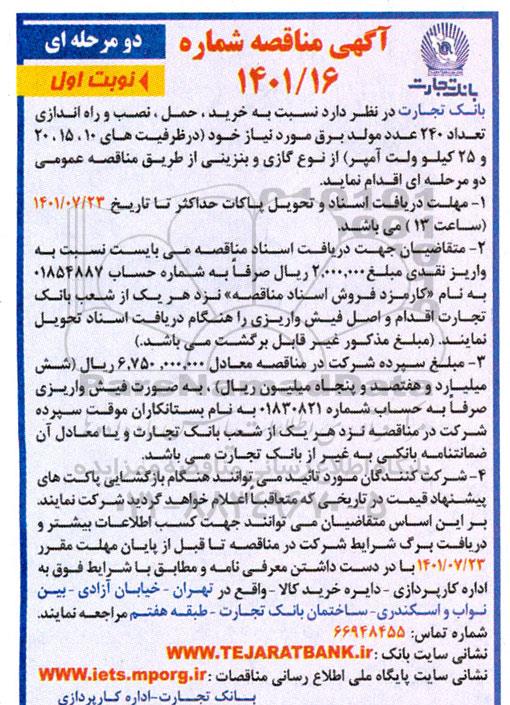 آگهی مناقصه شماره
۱۴۰۱/۱۶
دو مرحله ای
نوبت اول
بانک تجارت
بانک تجارت در نظر دارد نسبت به خرید ، حمل ، نصب و راه اندازی
تعداد ۲۴۰ عدد مولد برق مورد نیاز خود (درظرفیت های ۱۰ ، ۱۵ ، ۲۰
و ۲۵ کیلو ولت آمپر) از نوع گازی و بنزینی از طریق مناقصه عمومی
دو مرحله ای اقدام نماید.
۱- مهلت دریافت اسناد و تحویل پاکات حداکثر تا تاریخ ۱۴۰۱/۰۷/۲۳
(ساعت ۱۳ ) می باشد.
۲- متقاضیان جهت دریافت اسناد مناقصه می بایست نسبت به
واریز نقدی مبلغ ۲,۰۰۰,۰۰۰ ریال صرفاً به شماره حساب ۰۱۸۵۴۸۸۷
به نام «کارمزد فروش اسناد مناقصه» نزد هر یک از شعب بانک
تجارت اقدام و اصل فیش واریزی را هنگام دریافت اسناد تحویل
نمایند. (مبلغ مذکور غیر قابل برگشت می باشد.)
۳- مبلغ سپرده شرکت در مناقصه معادل ۶,۷۵۰,۰۰۰,۰۰۰ ریال (شش
میلیارد و هفتصد و پنجاه میلیون ریال) ، به صورت فیش واریزی
صرفاً به حساب شماره ۰۱۸۳۰۸۲۱ به نام بستانکاران موقت سپرده
شرکت در مناقصه نزد هر یک از شعب بانک تجارت و یا معادل آن
ضمانتنامه بانکی به غیر از بانک تجارت می باشد.
۴- شرکت کنندگان مورد تائید می توانند هنگام بازگشایی پاکت های
پیشنهاد قیمت در تاریخی که متعاقباً اعلام خواهد گردید شرکت نمایند.
بر این اساس متقاضیان می توانند جهت کسب اطلاعات بیشتر و
دریافت برگ شرایط شرکت در مناقصه تا قبل از پایان مهلت مقرر
۱۴۰۱/۰۷/۲۳ با در دست داشتن معرفی نامه و مطابق با شرایط فوق به
اداره کارپردازی - دایره خرید کالا - واقع در تهران - خیابان آزادی - بین
نواب و اسکندری - ساختمان بانک تجارت - طبقه هفتم مراجعه نمایند.
شماره تماس: ۶۶۹۴۸۴۵۵
نشانی سایت بانک : WWW.TEJARATBANK.ir
نشانی سایت پایگاه ملی اطلاع رسانی مناقصات : WWW.iets.mporg.ir
بانک تجارت-اداره کارپردازی